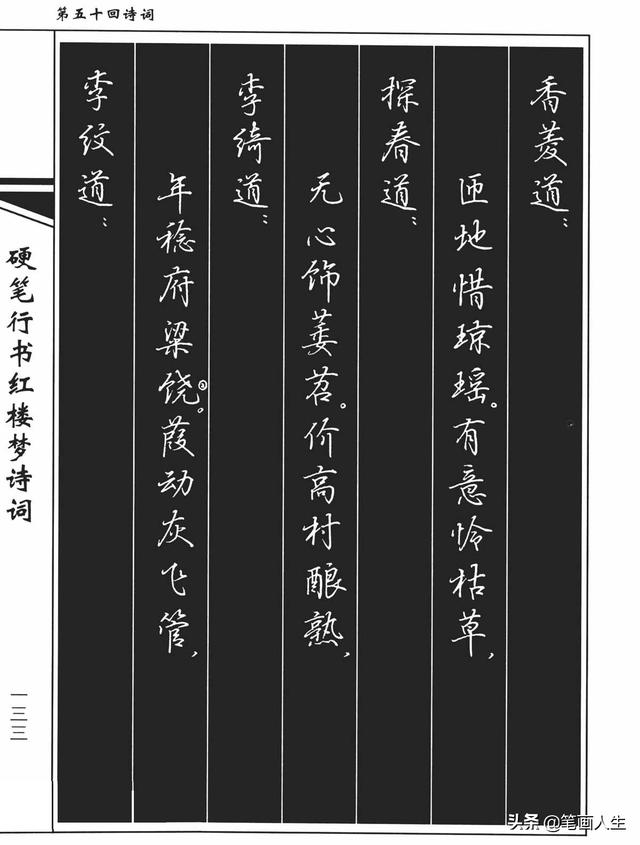 第五十回诗词
香菱道：
匝地惜琼瑶。有意怜枯草，
探春道：
无心饰萎苕。价高村酿熟，
李绮道：
年稔府粱饶③。葭动灰飞管，
李纹道：
硬笔行书红楼梦诗词
一三三
头条 @笔画人生